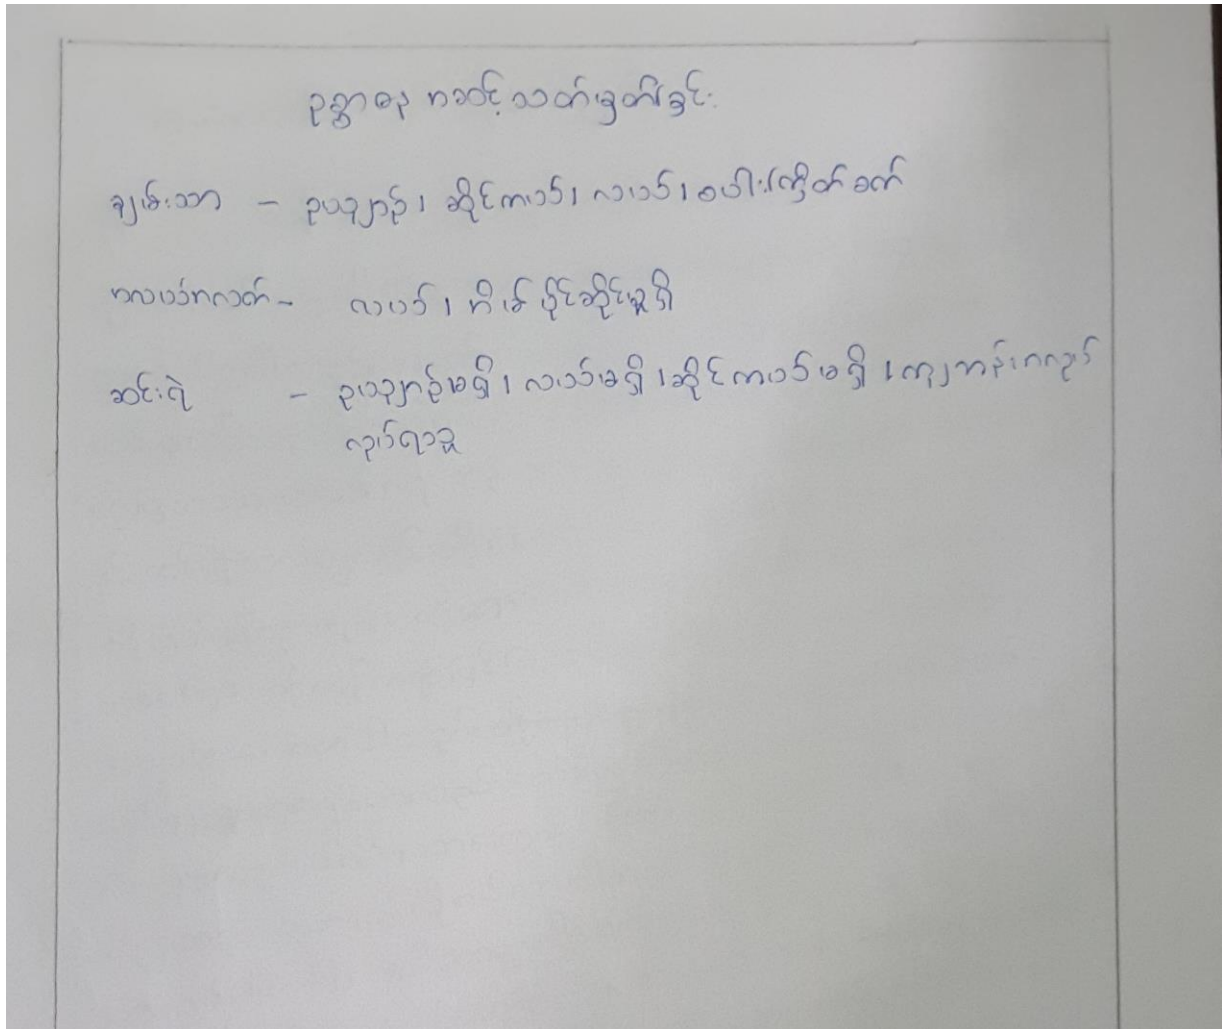 ဥစ္စာဓန အဆင့်သတ်မှတ်ခြင်း
ချမ်းသာ - ဥယျာဉ်၊ ဆိုင်ကယ်၊ လယ်၊ စပါးကြိတ်စက်
အလယ်အလတ် - လယ်၊ အိမ်ပိုင်ဆိုင်မှုရှိ
ဆင်းရဲ - ဥယျာဉ်မရှိ၊ လယ်မရှိ၊ ဆိုင်ကယ်မရှိ၊ ကျပန်းအလုပ်
လုပ်ရသူ